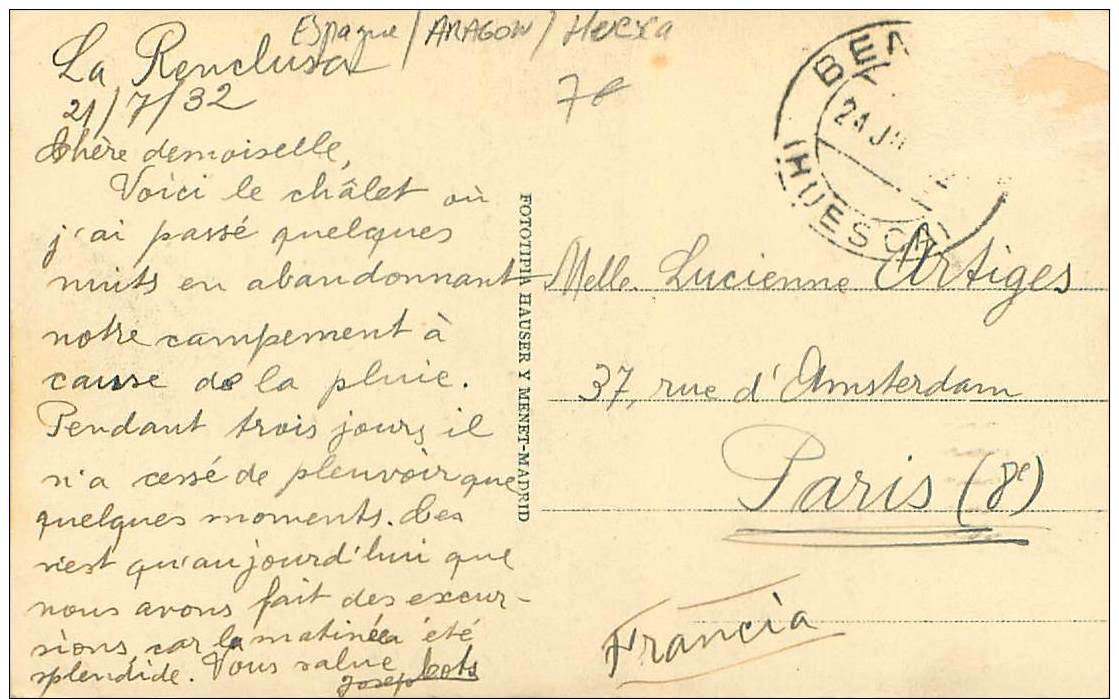 Espagne / ARAGON / Huesca
La Renclusa
21/7/32
78
Chère demoiselle,
Voici le châlet où
j'ai passé quelques
nuits en abandonnant
notre campement à
cause de la pluie.
Pendant trois jours, il
n'a cessé de pleuvoir que
quelques moments. Ces
n'est qu'aujourd'hui que
nous avons fait des excur-
sions, car la matinée a été
splendide. Vous salue
Josep
FOTOTIPIA HAUSER Y MENET-MADRID
BEN
24 JU
(HUESCA)
Melle. Lucienne Artiges
37, rue d'Amsterdam
Paris (8e)
Francia